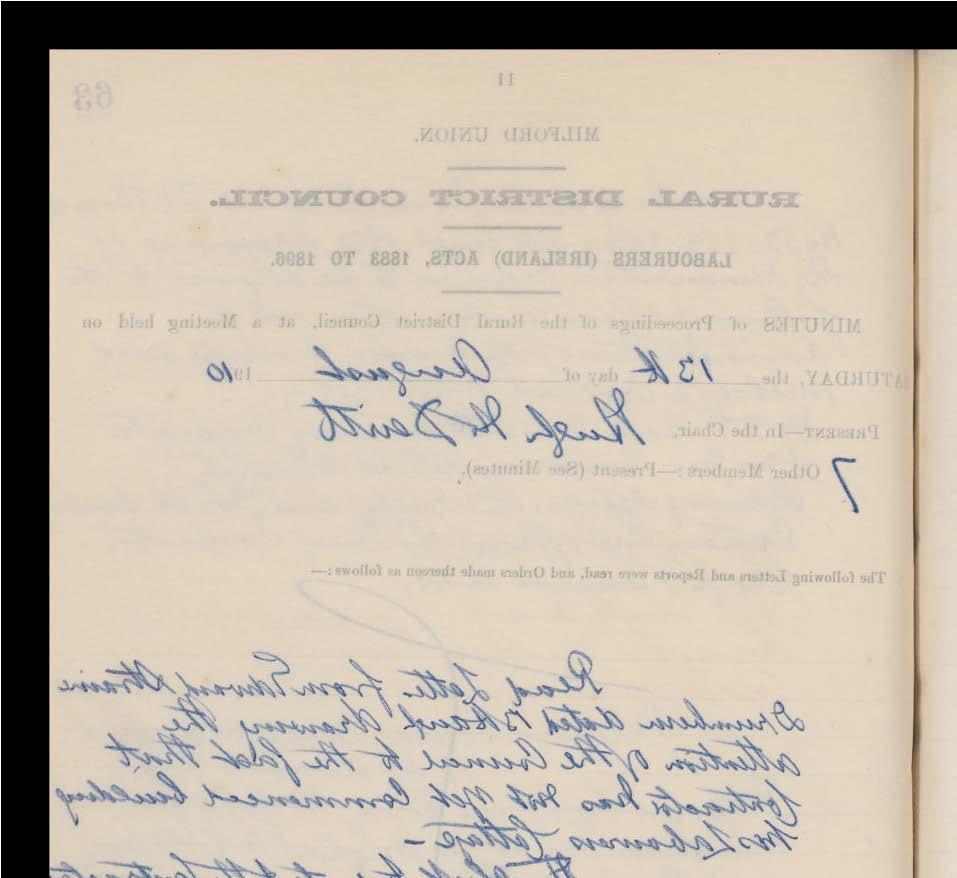 11
63
MILFORD UNION.
RURAL DISTRICT COUNCIL.
LABOURERS (IRELAND) ACTS, 1883 TO 1896.
MINUTES of Proceedings of the Rural District Council, at a Meeting held on
SATURDAY, the 13th day of August 1910
PRESENT—In the Chair, Hugh McDevitt
7 Other Members:—Present (See Minutes).
The following Letters and Reports were read, and Orders made thereon as follows:—
Read Letter from Edward
dated drawing the
attention of the Council to the fact that
Contractor has not yet commenced building
his Labourers Cottage -